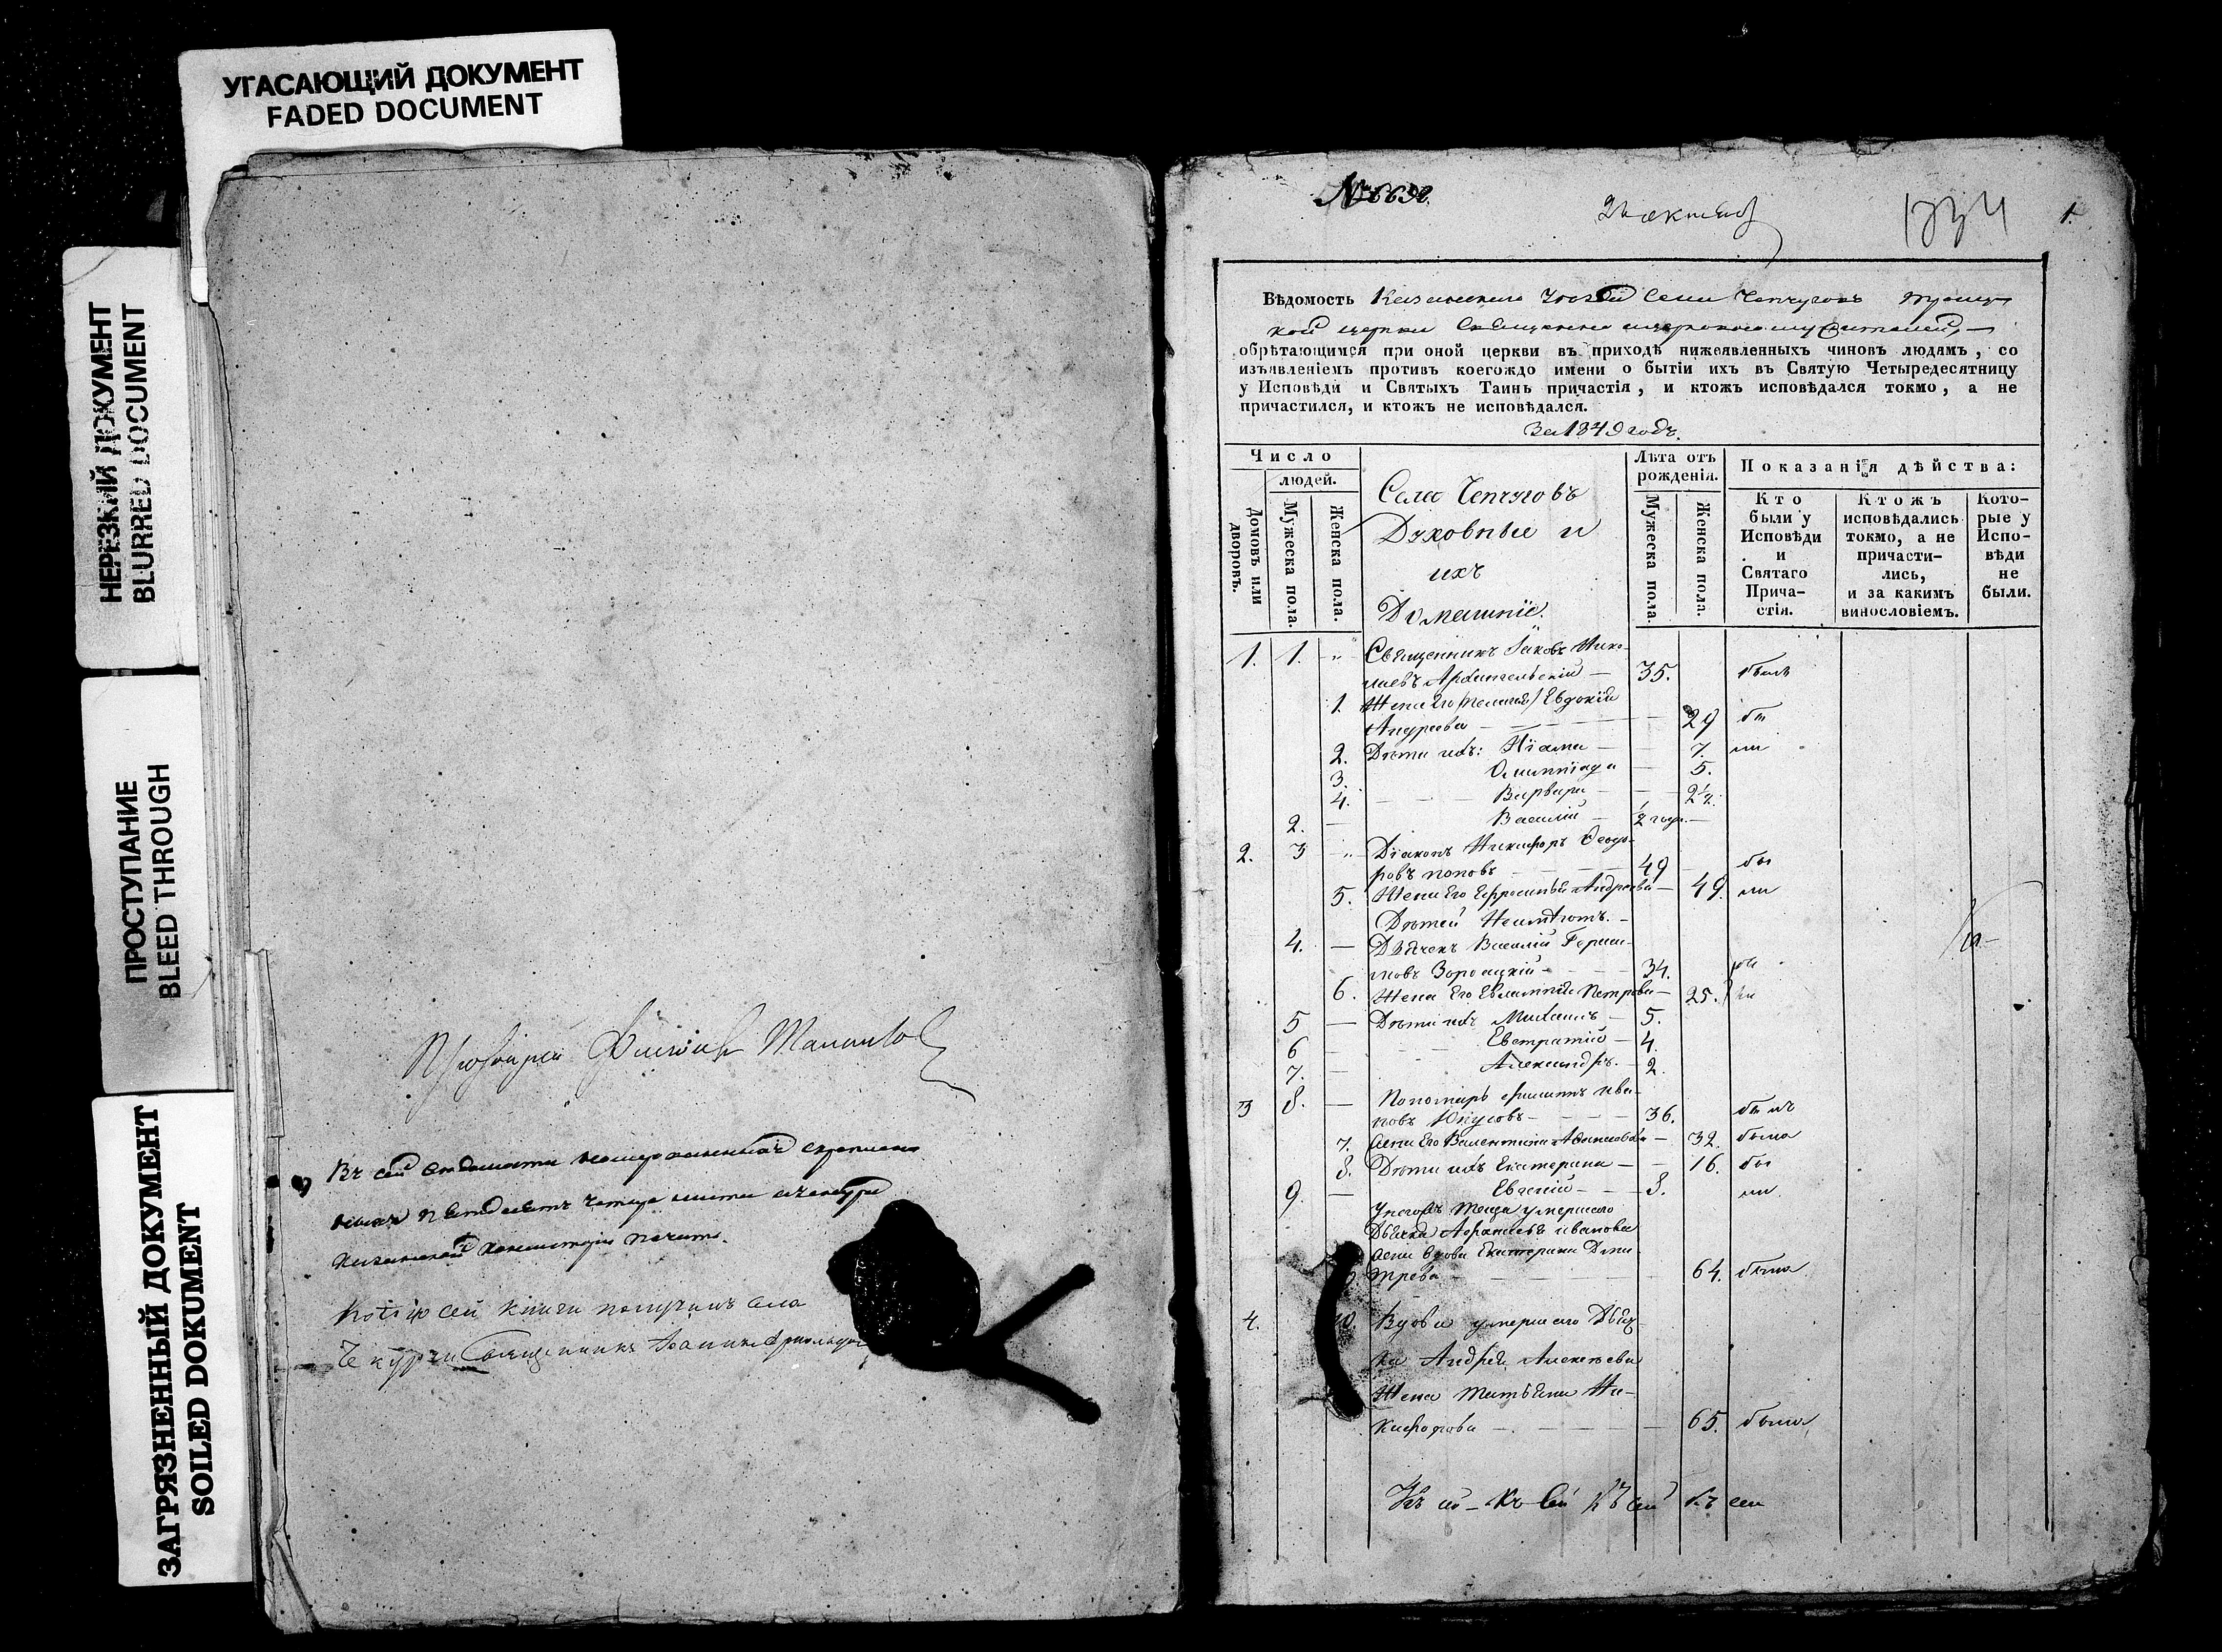 УГАСАЮЩИЙ ДОКУМЕНТ
FADED DOCUMENT
НЕРЕЗКИЙ ДОКУМЕНТ
BLURRED DOCUMENT
ПРОСТУПАНИЕ
BLEED THROUGH
ЗАГРЯЗНЕННЫЙ ДОКУМЕНТ
SOILED DOKUMENT
Въ сей
листа
Казанской Консисторіи печать.
Копію сей книги получилъ села
Священникъ Іоаннъ
1.
Вѣдомость Казанскаго Уѣзда Села Чепчуговъ
кой церкви Священно
обрѣтающимся при оной церкви въ приходѣ нижеявленныхъ чиновъ людямъ, со
изъявленіемъ противъ коегождо имени о бытіи ихъ въ Святую Четыредесятницу
у Исповѣди и Святыхъ Таинъ причастія, и ктожъ исповѣдался токмо, а не
причастился, и ктожъ не исповѣдался.
За 1849 годъ.
Число
людей.
Домовъ или дворовъ.
Мужеска пола.
Женска пола.
Села Чепчуговъ
Духовные и
ихъ
Домашніе.
Лѣта отъ
рожденія.
Мужеска пола.
Женска пола.
Показанія дѣйства:
Кто
были у
Исповѣди
и
Святаго
Прича-
стія.
Ктожъ
исповѣдались
токмо, а не
причасти-
лись,
и за какимъ
винословіемъ.
Кото-
рые у
Испо-
вѣди
не
были.
1. 1. Священникъ Іаковъ Нико-
лаевъ Архангельскій 35. былъ
1. Жена Его Евдокія
Андреева 29 бы
2. Дѣти ихъ: 7. ли
3. Олимпіада 5.
4. Варвара 2 1/2.
2. Василій 1/2 года
2. 3 Діаконъ Никифоръ Ѳеодо-
ровъ Поповъ 49 бы
5. Жена Его Ефросинья Андреева 49. ли
Дѣтей Неимѣютъ.
4. Дьячекъ Василій Гераси-
мовъ 34. бы
6. Жена Его Евлампія Петрова 25. ли
5 Дѣти ихъ Михаилъ 5.
6 Евстратій 4.
7. Александръ 2.
3 8. Пономарь Филиппъ Ива-
новъ Юнусовъ 36. былъ
7. Жена Его Валентина 32. была
8. Дѣти ихъ Екатерина 16. бы
9. Евгеній 8. ли
Унегожъ теща умершаго
Дьячка Аѳанасья Иванова
жена вдова Екатерина Дми-
трева 64. была
4. 10. Вдова умершаго Дьяч-
ка Андрея Алексѣева
Жена Татьяна Ни-
кифорова 65. была